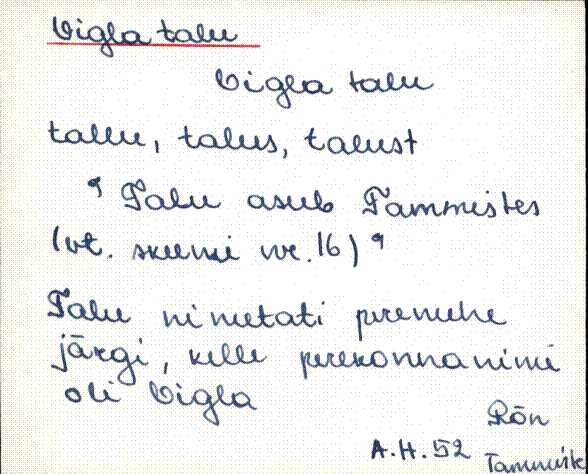 Vigla talu
Vigla talu
tallu, talus, talust
" Talu asub Tammistes
(vt. skeemi nr. 16) "
Talu nimetati peremehe
järgi, kelle perekonnanimi
oli Vigla
Rõn
A.H. 52 Tammistk